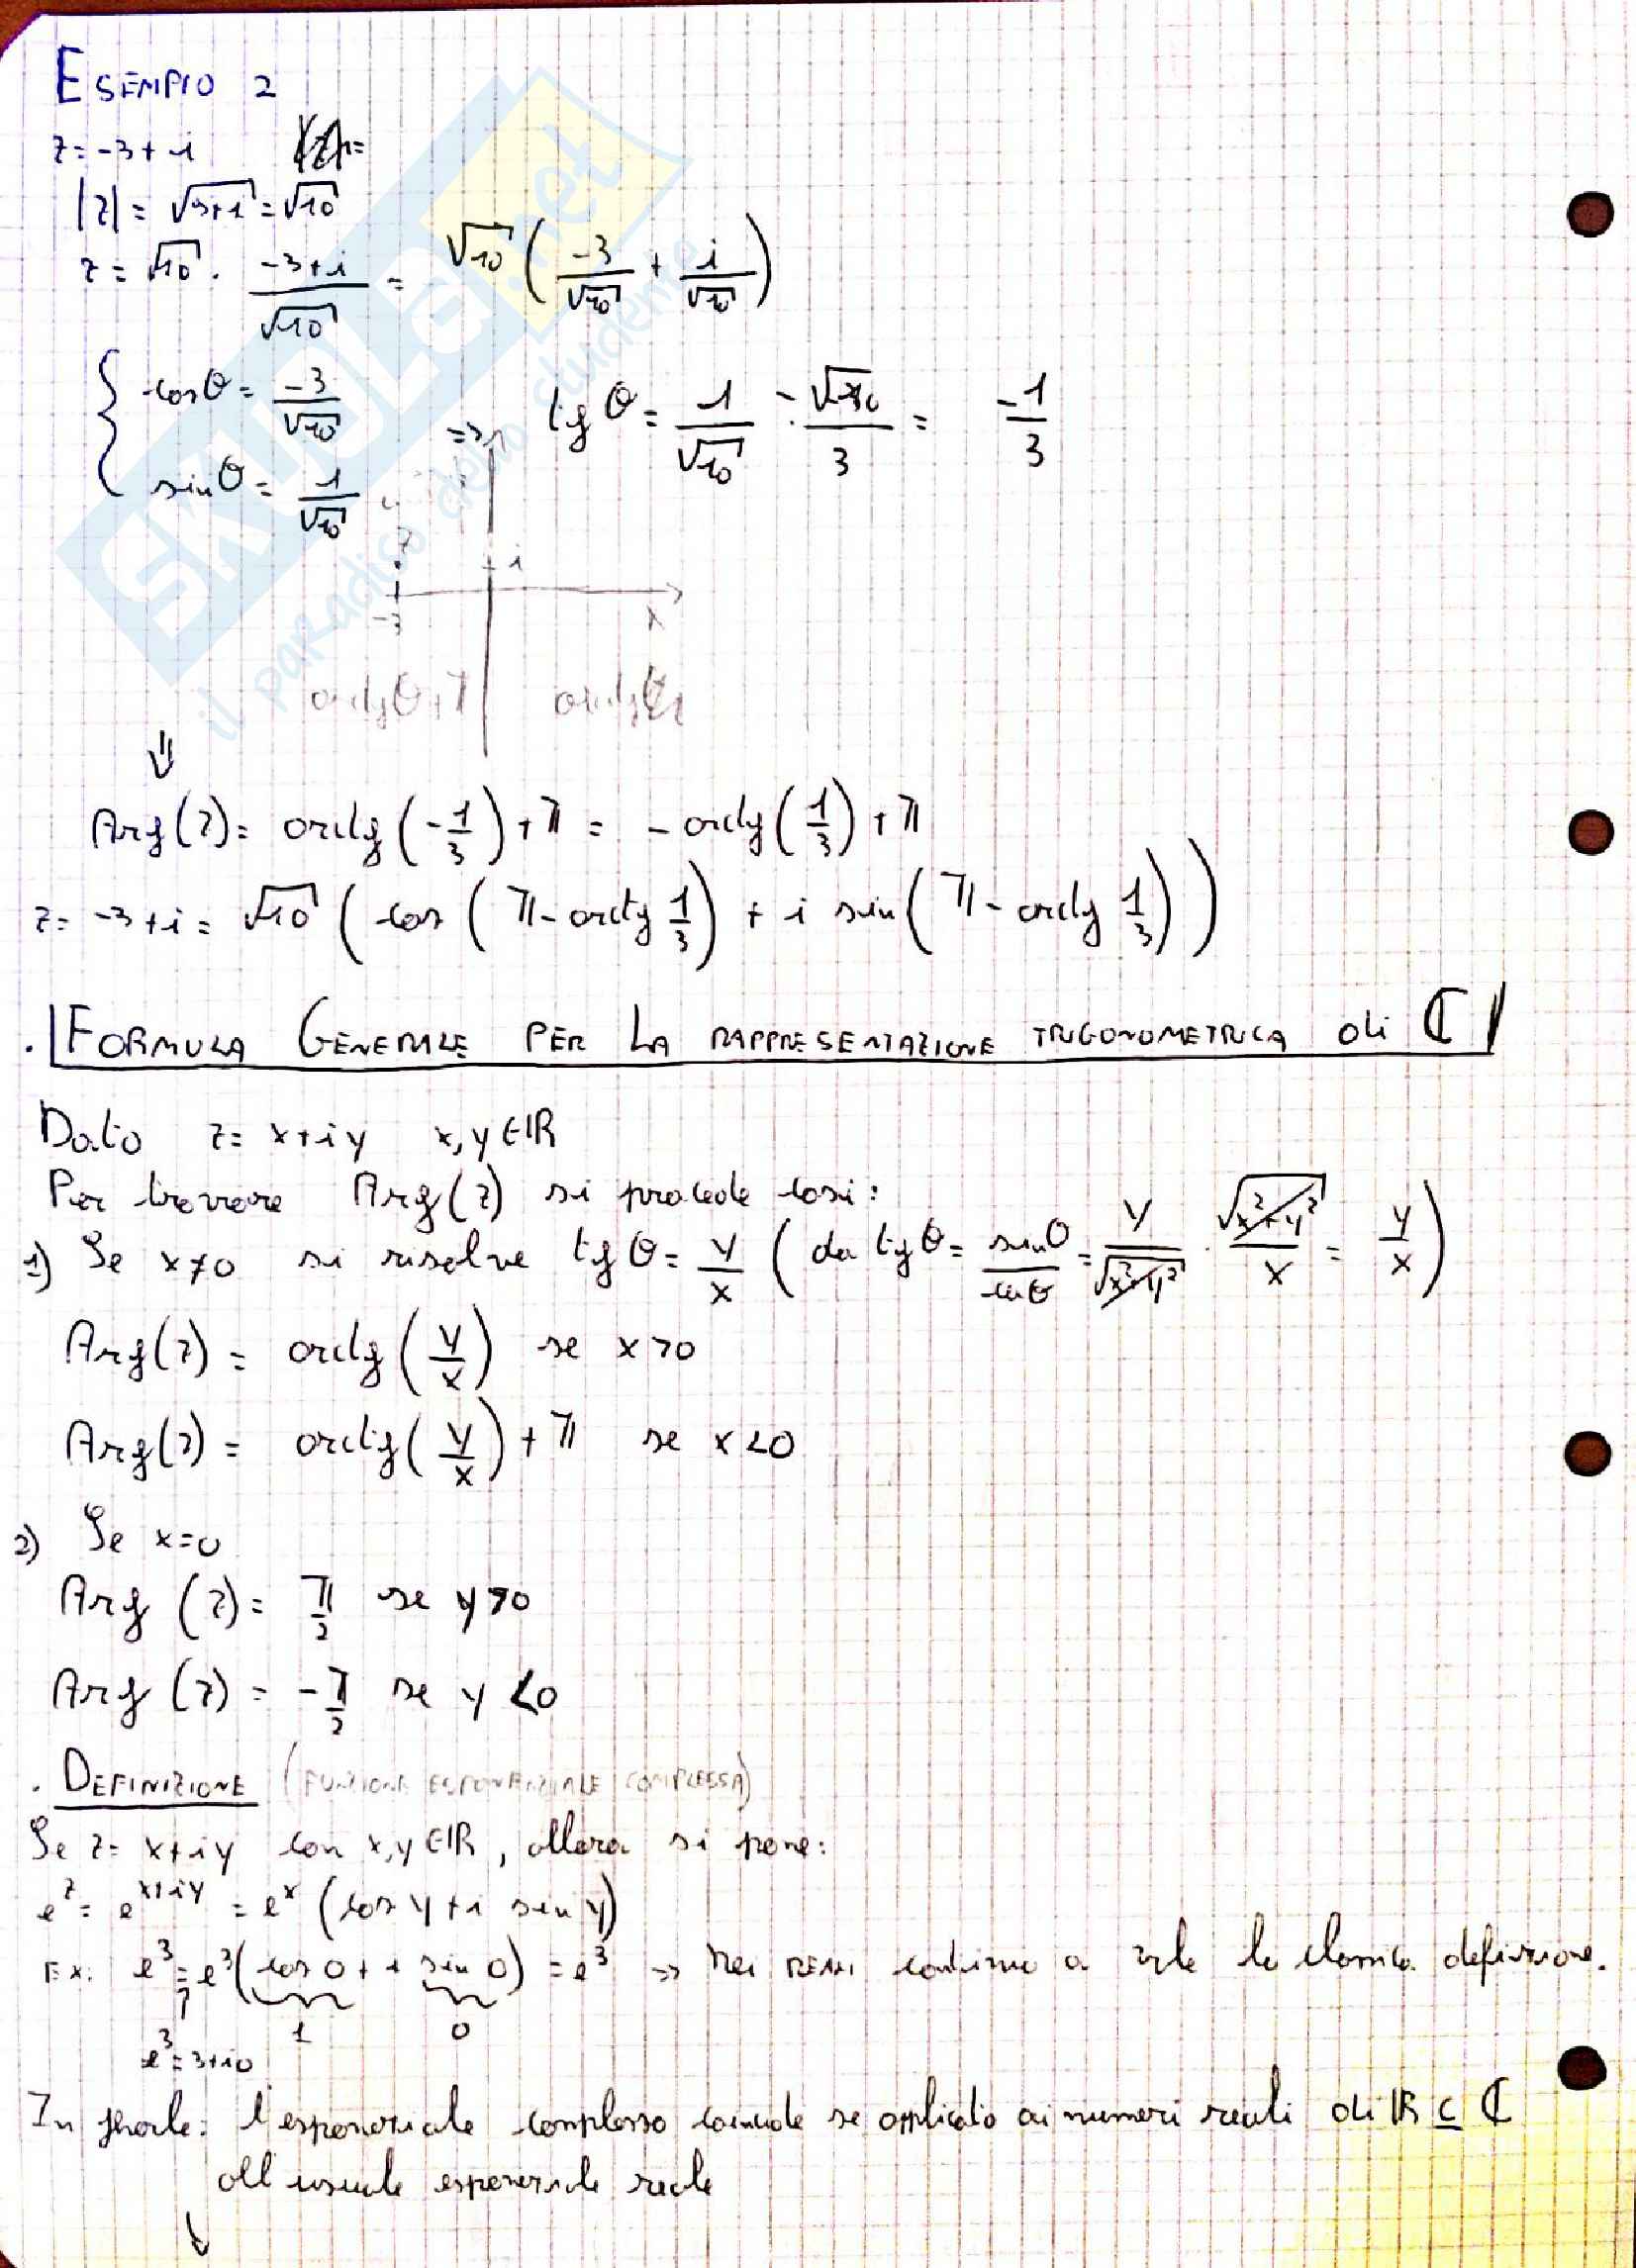 ESEMPIO 2
z = -3 + i
|z| = √9+1 = √10
z = √10 · -3+i/√10 = √10 ( -3/√10 + i/√10 )
{ cosθ = -3/√10
sinθ = 1/√10
=> tgθ = 1/√10 · -√10/3 = -1/3
z
i
-3
x
arctgθ+π
⇓
Arg(z) = arctg(-1/3) + π = - arctg(1/3) + π
z = -3+i = √10 ( cos ( π - arctg 1/3 ) + i sin ( π - arctg 1/3 ) )
. FORMULA GENERALE PER LA RAPPRESENTAZIONE TRIGONOMETRICA di ℂ
Dato z = x+iy x,y ∈ ℝ
Per trovare Arg(z) si procede così:
1) Se x≠0 si risolve tgθ = y/x ( da tgθ = sinθ/cosθ = y/√x²+y² · √x²+y²/x = y/x )
Arg(z) = arctg ( y/x ) se x>0
Arg(z) = arctg ( y/x ) + π se x<0
2) Se x=0
Arg (z) = π/2 se y>0
Arg (z) = -π/2 se y<0
. DEFINIZIONE (FUNZIONE ESPONENZIALE COMPLESSA)
Se z = x+iy con x,y ∈ ℝ, allora si pone:
e^z = e^x+iy = e^x (cos y + i sin y)
Ex: e^3 = e^3 (cos 0 + i sin 0) = e^3 → Nei REALI continua a vale la classica definizione.
1 0
e^3 = 3+i0
In : l'esponenziale complesso coincide se applicato ai numeri reali di ℝ ⊆ ℂ
all'usuale esponenziale reale
↓
SKUOLA.net
il paradiso dello studente